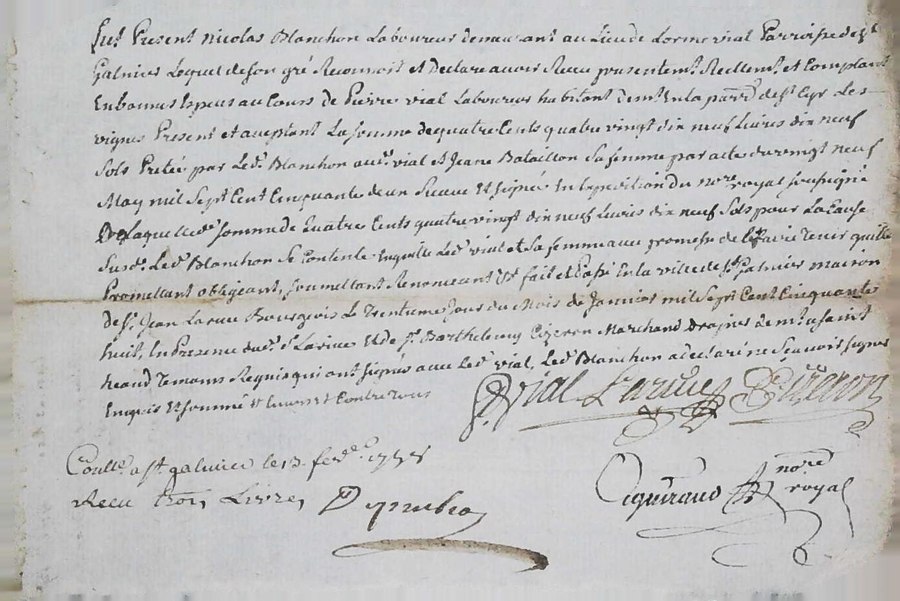 fut Present nicolas Blanchon Laboureur demeurant au Lieu de Lormevial Parroisse de st
Galmier Lequel de son gré Reconnoit et declare avoir Recu presentemt. Reellemt. et Comptant
En bonnes Especes au Cours de Pierre vial Laboureur habitant demt. En la parre. de st. Cyr Les
vignes Present et aceptant La somme de quatre Cents quatre vingt dix neuf Livres dix neuf
Sols Pretée par Ledt. Blanchon audt. vial et Jeane Bataillon Sa femme par acte du vingt neuf
May mil Sept Cent Cinquante deux Et signé En Expedition du nore. royal soussigné
De laquelle de. somme de Quatre Cents quatre vingt dix neuf Livres dix neuf Sols pour La Cause
Susde. Ledt. Blanchon Se Contente Enquitte Ledt. vial et sa femme avec promesse de Les faire Tenir quitte
Promettant obligeant, soumettant Renonceant Et fait et Passé En la ville de st. Galmier maison
de sr. Jean Larüe Bourgeois Le Trentieme Jour du Mois de Janvier mil Sept Cent Cinquante
huit, En Presence dudt. sr. Larüe Et de sr. Barthelemy Cizeron Marchand demt.
Temoins Requis qui ont signés avec Ledt. vial, Ledt. Blanchon a declaré ne Scavoir signer
Enquis Et sommé
Vial Larüe Cizeron
Contlé. a st. galmier le 13. fevr.
Recu trois Livres
nore.
royal